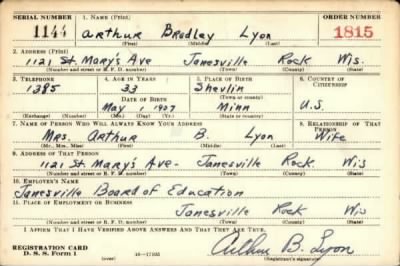 SERIAL NUMBER 1. NAME (Print) ORDER NUMBER
1144 Arthur Bradley Lyon 1815
(First) (Middle) (Last)
2. ADDRESS (Print)
1121 St. Mary's Ave Janesville Rock Wis.
(Number and street or R. F. D. number) (Town) (County) (State)
3. TELEPHONE 4. AGE IN YEARS 5. PLACE OF BIRTH 6. COUNTRY OF CITIZENSHIP
1385 33 Shevlin
(Town or county)
DATE OF BIRTH
May 1 1907 Minn U.S.
(Exchange) (Number) (Mo.) (Day) (Yr.) (State or country)
7. NAME OF PERSON WHO WILL ALWAYS KNOW YOUR ADDRESS 8. RELATIONSHIP OF THAT PERSON
Mrs. Arthur B. Lyon Wife
(Mr., Mrs., Miss) (First) (Middle) (Last)
9. ADDRESS OF THAT PERSON
1121 St Mary's Ave- Janesville Rock Wis
(Number and street or R. F. D. number) (Town) (County) (State)
10. EMPLOYER'S NAME
Janesville Board of Education
11. PLACE OF EMPLOYMENT OR BUSINESS
Janesville Rock Wis
(Number and street or R. F. D. number) (Town) (County) (State)
I AFFIRM THAT I HAVE VERIFIED ABOVE ANSWERS AND THAT THEY ARE TRUE.
REGISTRATION CARD
D. S. S. Form 1 (over) Arthur B. Lyon
(Registrant's signature)